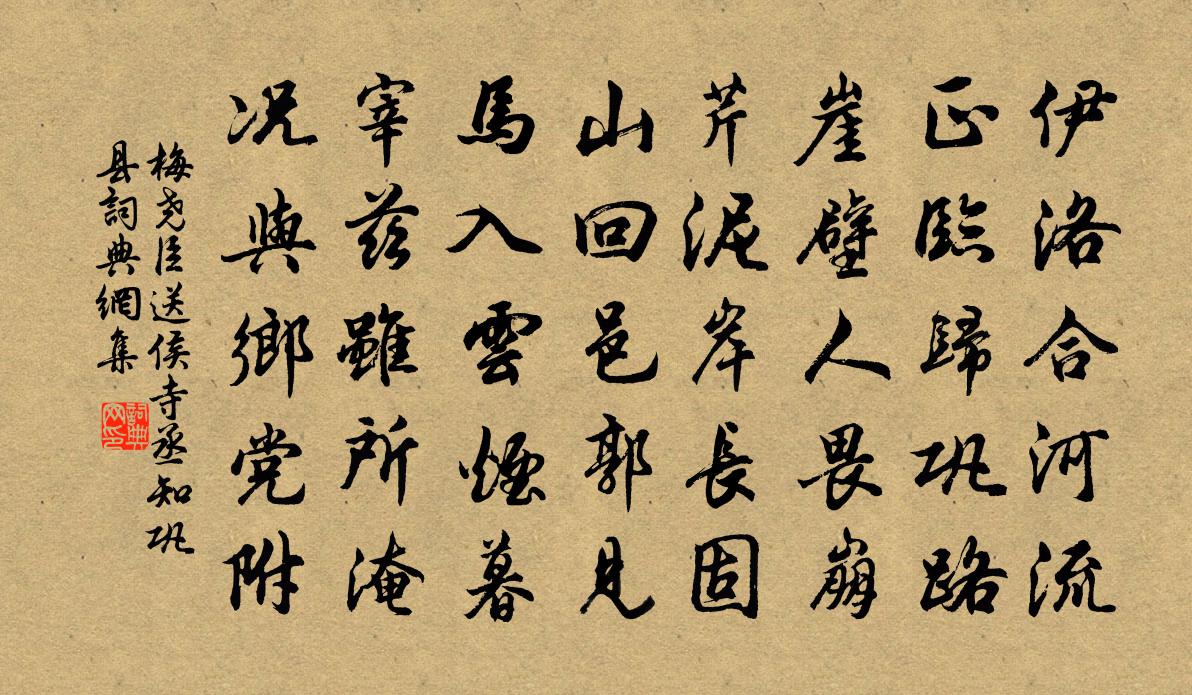 伊洛合河流
正臨歸巩路
崖壁人畏崩
芹泥岸長固
山回邑郭見
馬入雲煙暮
宰兹雖所淹
况與鄉党附
梅尧臣送侯寺丞知巩
县詞典網集
詞典网印